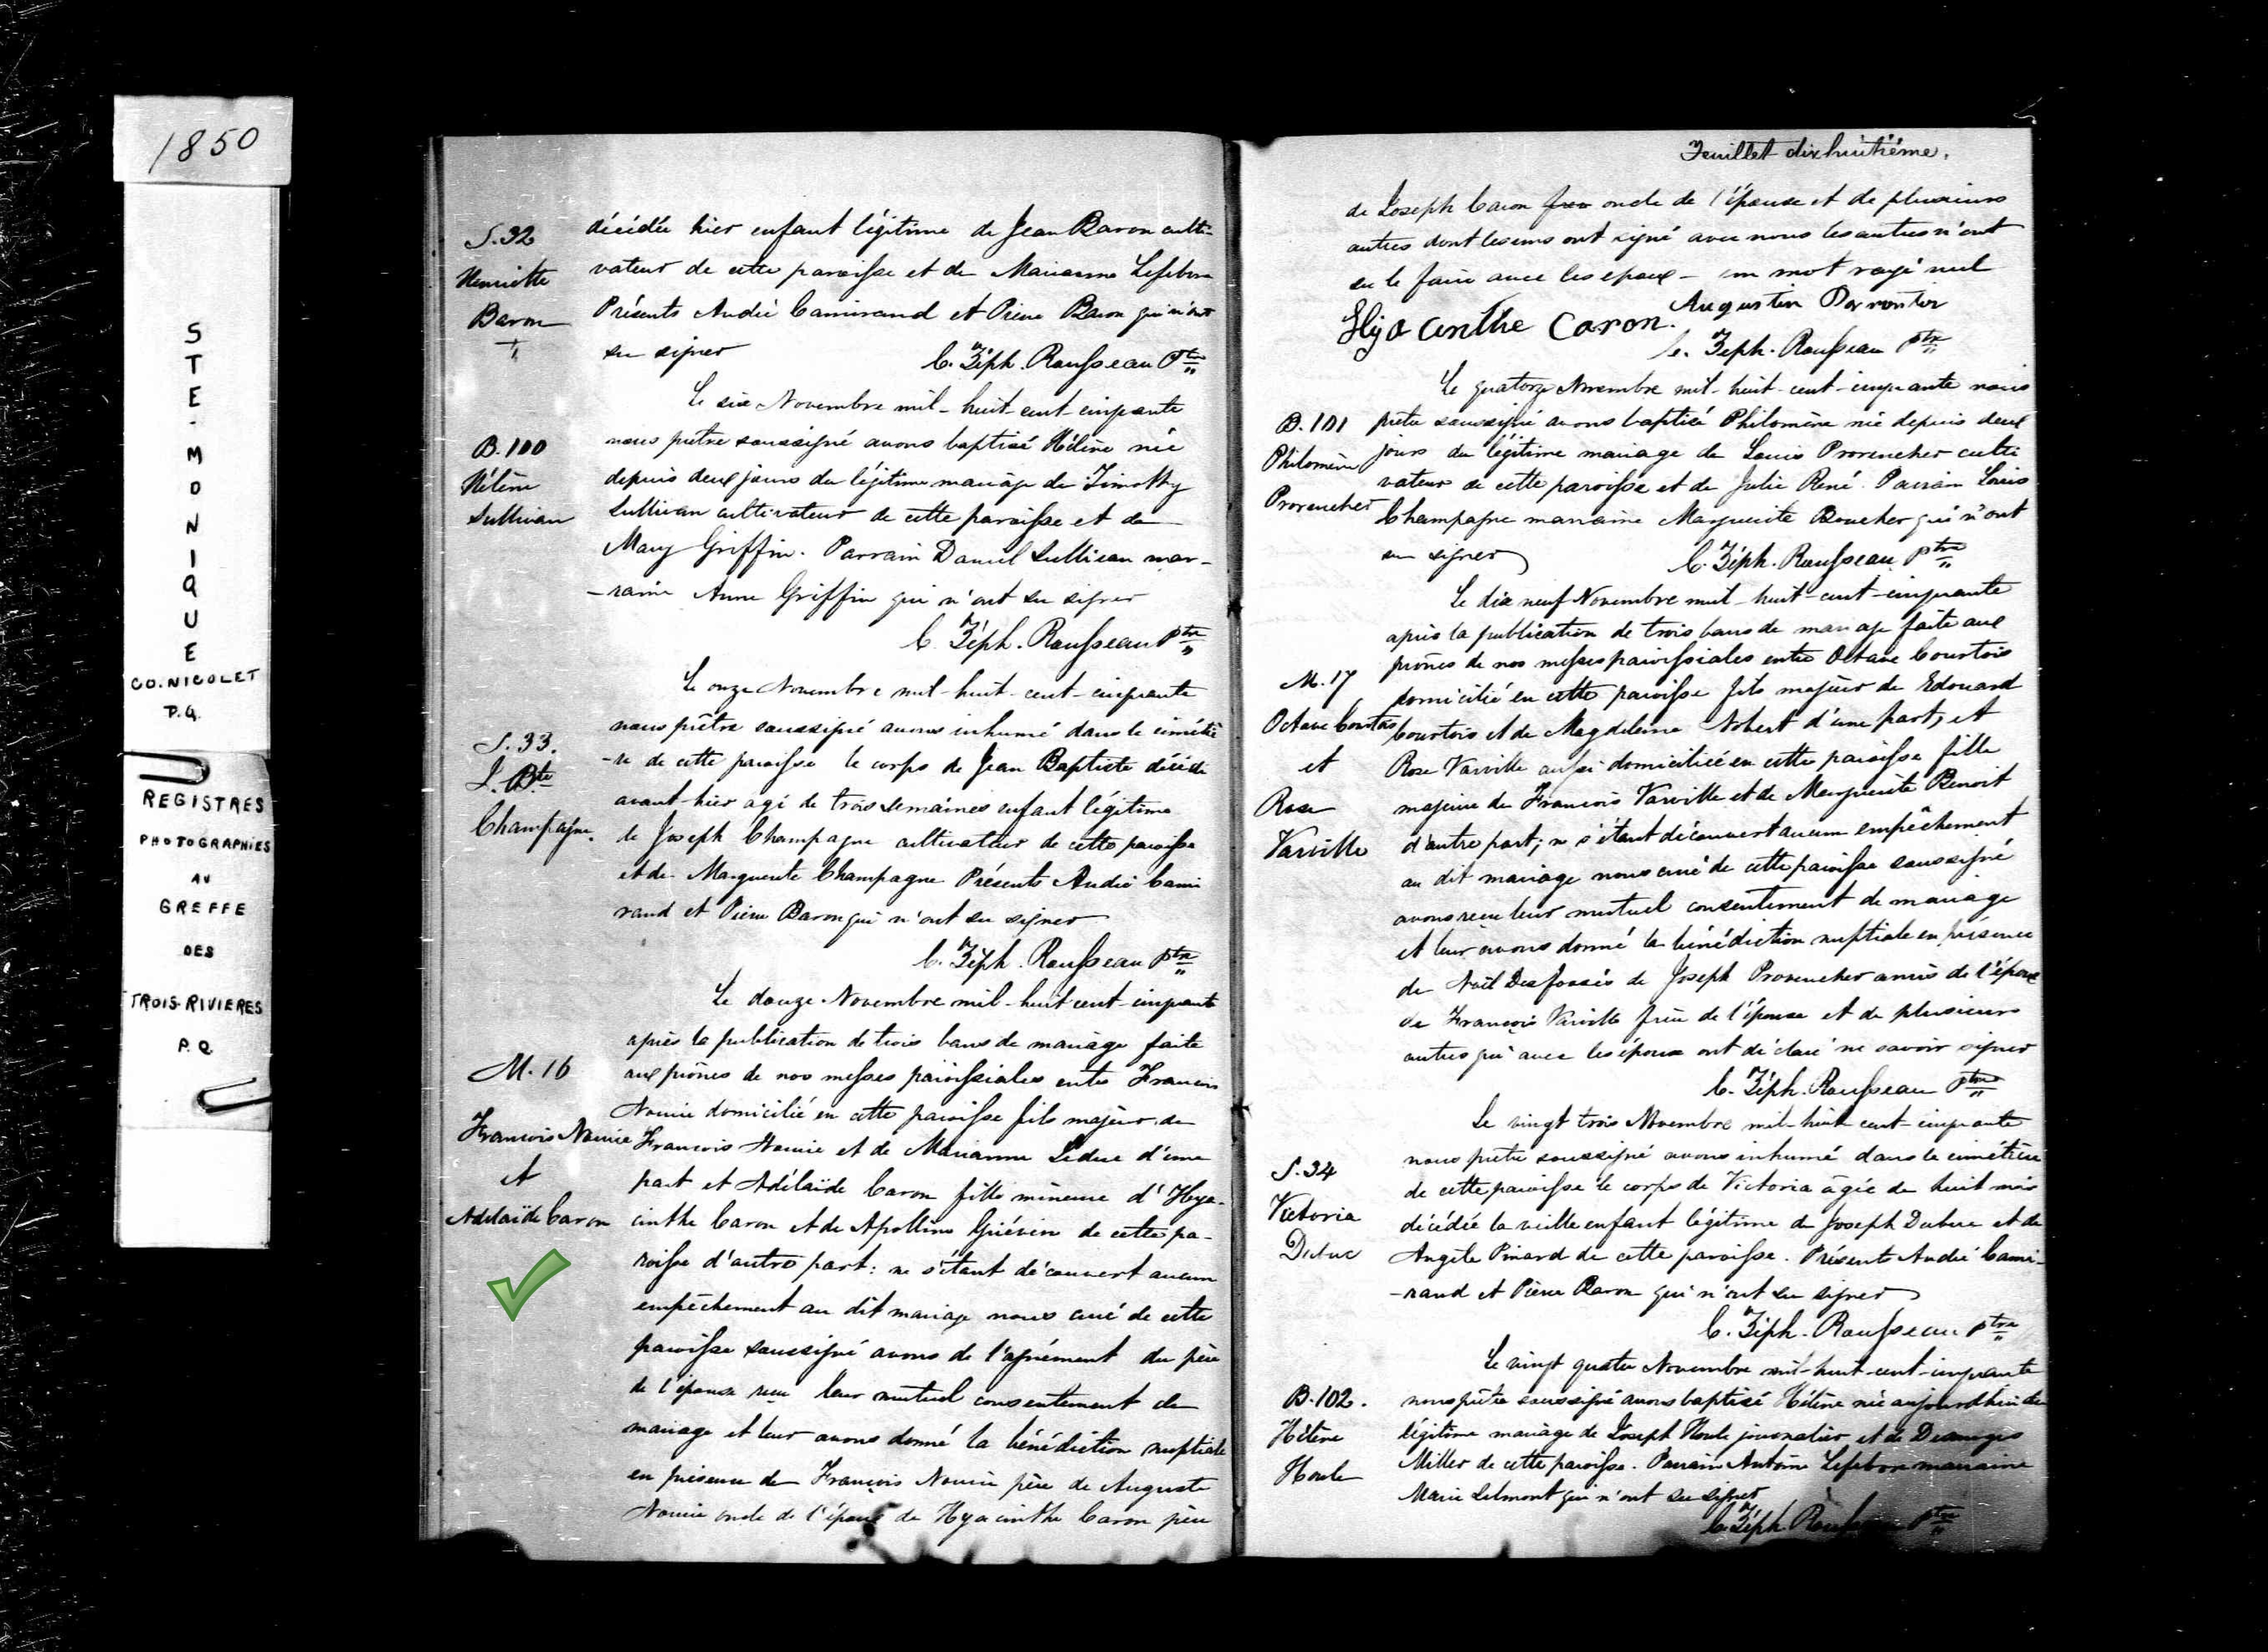 1850
STE. MONIQUE
CO. NICOLET
P.Q.
REGISTRES
PHOTOGRAPHIÉS
AU
GREFFE
DES
TROIS-RIVIERES
P.Q.
S.32
Henriette
Baron
décédée hier enfant légitime de Jean Baron culti-
vateur de cette paroisse et de Marianne Lefebvre
Présents André Camirand et Pierre Baron qui n'ont
su signer
C. Zéph. Rousseau Ptre
Le six Novembre mil-huit-cent-cinquante
B.100
Hélène
Sullivan
nous prêtre soussigné avons baptisé Hélène née
depuis deux jours du légitime mariage de Timothy
Sullivan cultivateur de cette paroisse et de
Mary Griffin. Parrain Daniel Sullivan mar-
-raine Anne Griffin qui n'ont su signer
C. Zéph. Rousseau Ptre
Le onze Novembre mil-huit-cent-cinquante
S.33.
J. Bte
Champagne.
nous prêtre soussigné avons inhumé dans le cimétiè
-re de cette paroisse le corps de Jean Baptiste décédé
avant-hier agé de trois semaines enfant légitime
de Joseph Champagne cultivateur de cette paroisse
et de Marguerite Champagne Présents André Cami
rand et Pierre Baron qui n'ont su signer
C. Zéph. Rousseau Ptre
Le douze Novembre mil-huit cent-cinquante
M.16
François Nourie
et
Adélaïde Caron
après la publication de trois bans de mariage faite
aux prônes de nos messes paroissiales entre François
Nourie domicilié en cette paroisse fils majeur de
François Nourie et de Marianne Leduc d'une
part et Adélaïde Caron fille mineure d'Hya-
cinthe Caron et de Apolline Guévin de cette pa-
roisse d'autre part: ne s'étant découvert aucun
empêchement au dit mariage nous curé de cette
paroisse soussigné avons de l'agrément du père
de l'épouse reçu leur mutuel consentement de
mariage et leur avons donné la bénédiction nuptiale
en présence de François Nourie père de Auguste
Nourie oncle de l'époux de Hyacinthe Caron père
Feuillet dixhuitième.
de Joseph Caron oncle de l'épouse et de plusieurs
autres dont les uns ont signé avec nous les autres n'ont
su le faire avec les epoux - un mot rayé nul
Hyacinthe Caron. Augustin
C. Zéph. Rousseau Ptre
Le quatorze Novembre mil-huit-cent-cinquante nous
B.101
Philomène
Provencher
prêtre soussigné avons baptisé Philomène née depuis deux
jours du légitime mariage de Louis Provencher culti
vateur de cette paroisse et de Julie René. Parrain Louis
Champagne marraine Marguerite Boucher qui n'ont
su signer
C. Zéph. Rousseau Ptre
Le dix neuf Novembre mil-huit-cent-cinquante
M.17
Octave Courtois
et
Rose
Varville
après la publication de trois bans de mariage faite aux
prônes de nos messes paroissiales entre Octave Courtois
domicilié en cette paroisse fils majeur de Edouard
Courtois et de Magdeleine Nobert d'une part, et
Rose Varville aussi domiciliée en cette paroisse fille
majeure de François Varville et de Marguerite Benoit
d'autre part; ne s'étant découvert aucun empêchement
au dit mariage nous curé de cette paroisse soussigné
avons reçu leur mutuel consentement de mariage
et leur avons donné la bénédiction nuptiale en présence
de Noël Desfossés de Joseph Provencher amis de l'époux
de François Varville frère de l'épouse et de plusieurs
autres qui avec les époux ont déclaré ne savoir signer
C. Zéph. Rousseau Ptre
Le vingt trois Novembre mil-huit cent-cinquante
S.34
Victoria
Dubuc
nous prêtre soussigné avons inhumé dans le cimétière
de cette paroisse le corps de Victoria âgée de huit mois
décédée la veille enfant légitime de Joseph Dubuc et de
Angèle Pinard de cette paroisse. Présents André Cami-
-rand et Pierre Baron qui n'ont su signer
C. Zéph. Rousseau Ptre
Le vingt quatre Novembre mil-huit-cent-cinquante
B.102.
Hélène
Houle
nous prêtre soussigné avons baptisé Hélène née aujourdhui du
légitime mariage de Joseph Houle journalier et de Desanges
Miller de cette paroisse. Parrain Antoine Lefebvre marraine
Marie Belmont qui n'ont su signer
C. Zéph. Rousseau Ptre